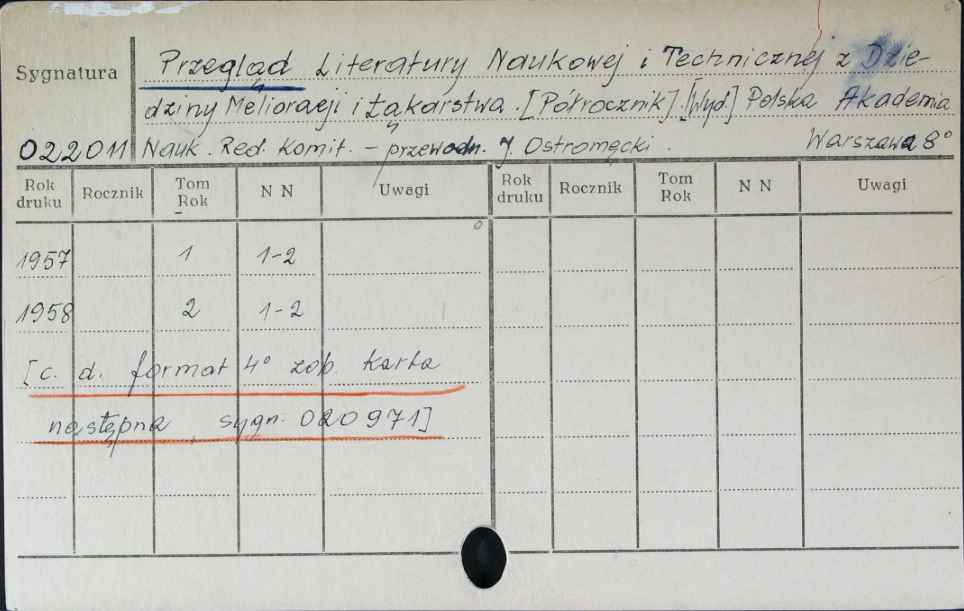 Sygnatura
Przegląd Literatury Naukowej i Technicznej z Dzie-
dziny Melioracji i Łąkarstwa. [Półrocznik]. [Wyd.] Polska Akademia
022011 Nauk. Red. Komit. – przewodn. J. Ostromęcki. Warszawa 8°
Rok druku Rocznik Tom Rok N N Uwagi Rok druku Rocznik Tom Rok N N Uwagi
1957 1 1-2
1958 2 1-2
[c. d. format 4° zob. karta
następna, sygn. 020971]